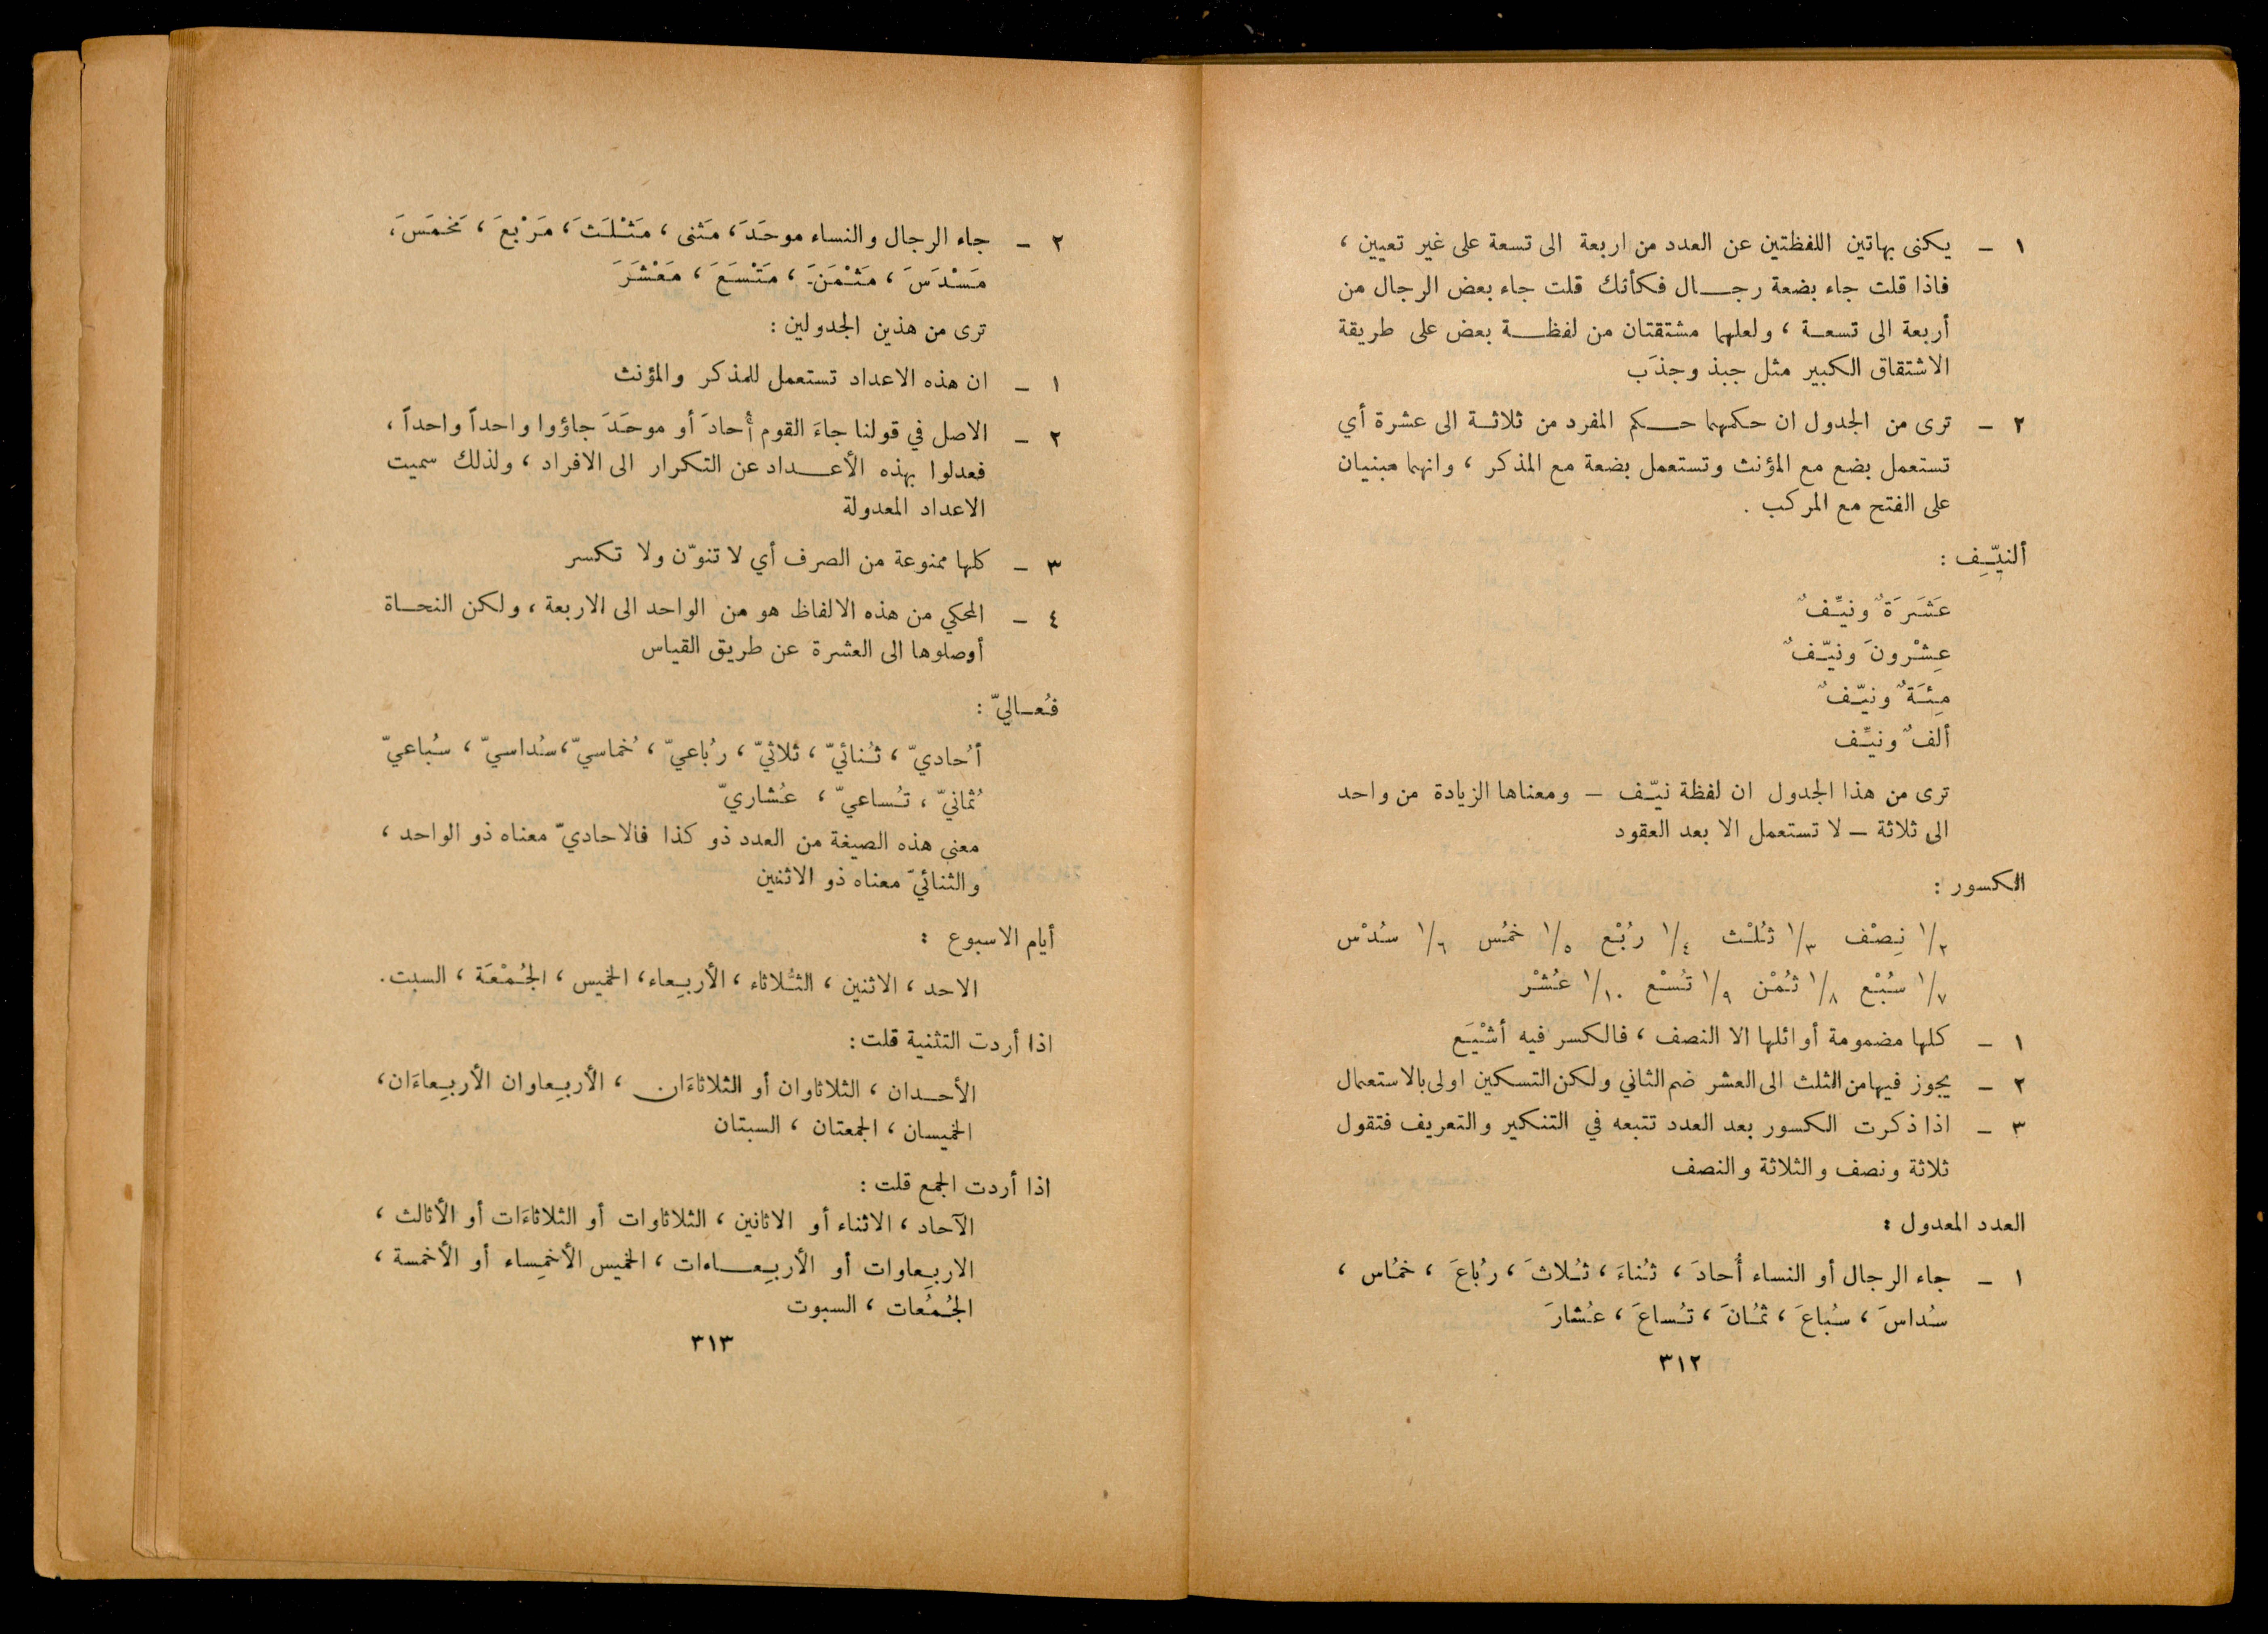 ١ – يكنى بهاتين اللفظتين عن العدد من اربعة الى تسعة على غير تعيين ،
فاذا قلت جاء بضعة رجال فكأنك قلت جاء بعض الرجال من
أربعة الى تسعة ، ولعلهما مشتقتان من لفظة بعض على طريقة
الاشتقاق الكبير مثل جبذ وجذَب
٢ – ترى من الجدول ان حكمهما حكم المفرد من ثلاثة الى عشرة أي
تستعمل بضع مع المؤنث وتستعمل بضعة مع المذكر ، وانهما مبنيان
على الفتح مع المركب .
ألنيّف :
عَشَرَةٌ ونيّفٌ
عِشْرونَ ونيّفٌ
مِئَةٌ ونيّفٌ
ألفٌ ونيّف
ترى من هذا الجدول ان لفظة نيّف – ومعناها الزيادة من واحد
الى ثلاثة – لا تستعمل الا بعد العقود
الكسور :
١/٢ نِصْف ١/٣ ثُلْث ١/٤ رُبْع ١/٥ خُمس ١/٦ سُدْس
١/٧ سُبْع ١/٨ ثُمْن ١/٩ تُسْع ١/١٠ عُشْر
١ – كلها مضمومة أوائلها الا النصف ، فالكسر فيه أشْيَع
٢ – يجوز فيها من الثلث الى العشر ضم الثاني ولكن التسكين اولى بالاستعمال
٣ – اذا ذكرت الكسور بعد العدد تتبعه في التنكير والتعريف فتقول
ثلاثة ونصف والثلاثة والنصف
العدد المعدول :
١ – جاء الرجال أو النساء أُحادَ ، ثُناءَ ، ثُلاثَ ، رُباعَ ، خُماس ،
سُداسَ ، سُباعَ ، ثُمانَ ، تُساعَ ، عُشارَ
٣١٢
٢ – جاء الرجال والنساء موحَدَ ، مَثنى ، مَثْلَثَ ، مَرْبعَ ، مَخمَسَ ،
مَسْدَسَ ، مَثْمَنَ ، مَتْسَعَ ، مَعْشَرَ
ترى من هذين الجدولين :
١ – ان هذه الاعداد تستعمل للمذكر والمؤنث
٢ – الاصل في قولنا جاءَ القوم أُحادَ أو موحَدَ جاؤوا واحداً واحداً ،
فعدلوا بهذه الأعداد عن التكرار الى الافراد ، ولذلك سميت
الاعداد المعدولة
٣ – كلها ممنوعة من الصرف أي لا تنوّن ولا تكسر
٤ – المحكي من هذه الالفاظ هو من الواحد الى الاربعة ، ولكن النحاة
أوصلوها الى العشرة عن طريق القياس
فُعاليّ :
أُحاديّ ، ثُنائيّ ، ثلاثيّ ، رُباعيّ ، خُماسيّ ، سُداسيّ ، سُباعيّ
ثُمانيّ ، تُساعيّ ، عُشاريّ
معنى هذه الصيغة من العدد ذو كذا فالاحاديّ معناه ذو الواحد ،
والثنائيّ معناه ذو الاثنين
أيام الاسبوع :
الاحد ، الاثنين ، الثُّلاثاء ، الأربِعاء ، الخميس ، الجُمْعَة ، السبت .
اذا أردت التثنية قلت :
الأحدان ، الثلاثاوان أو الثلاثاءَان ، الأربِعاوان الأربِعاءَان ،
الخميسان ، الجمعتان ، السبتان
اذا أردت الجمع قلت :
الآحاد ، الاثناء أو الاثانين ، الثلاثاوات أو الثلاثاءَات أو الأثالث ،
الاربِعاوات أو الأربِعاءات ، الخميس الأخمِساء أو الأخمسة ،
الجُمُعات ، السبوت
٣١٣